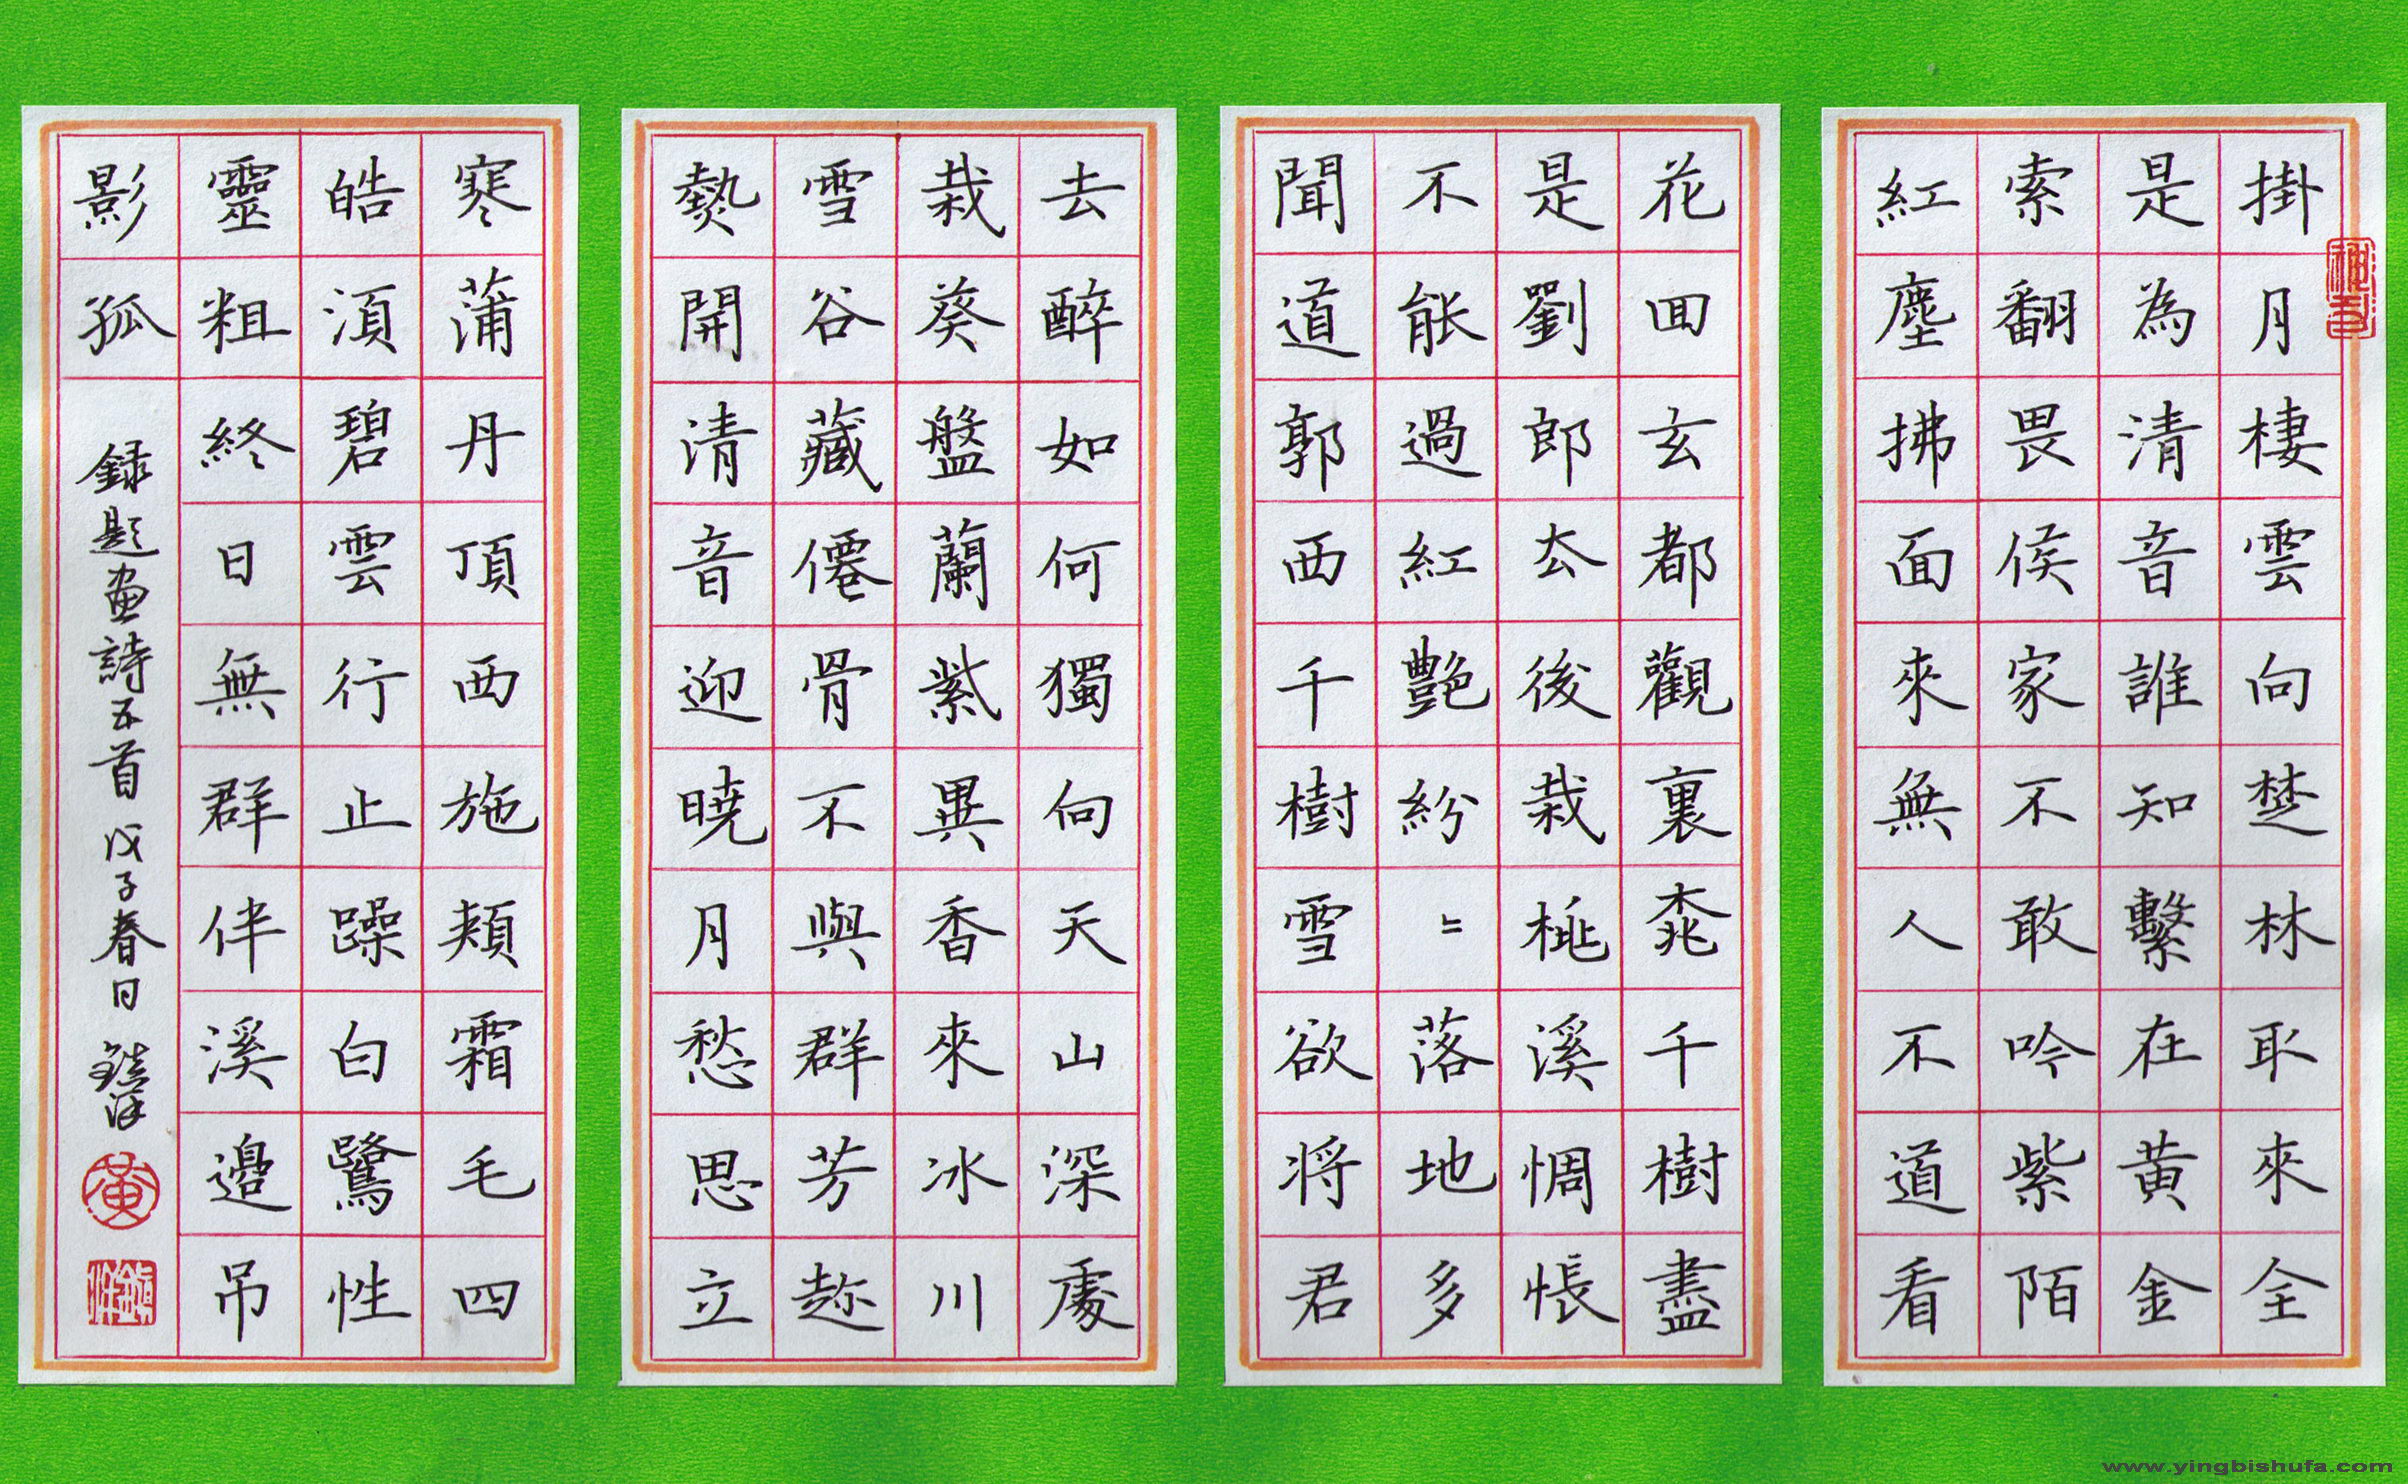 掛月棲雲向楚林取來全
是為清音誰知繫在黃金
索翻畏侯家不敢吟紫陌
紅塵拂面來無人不道看
花回玄都觀裏桃千樹盡
是劉郎去後栽桃溪惆悵
不能過紅艷紛〻落地多
聞道郭西千樹雪欲將君
去醉如何獨向天山深處
栽葵盤蘭紫異香來冰川
雪谷藏僊骨不與群芳趂
熱開清音迎曉月愁思立
寒蒲丹頂西施頰霜毛四
皓須碧雲行止躁白鷺性
靈粗終日無群伴溪邊吊
影孤
錄題畫詩五首 戊子春日 鎮洋
黃
www.yingbishufa.com